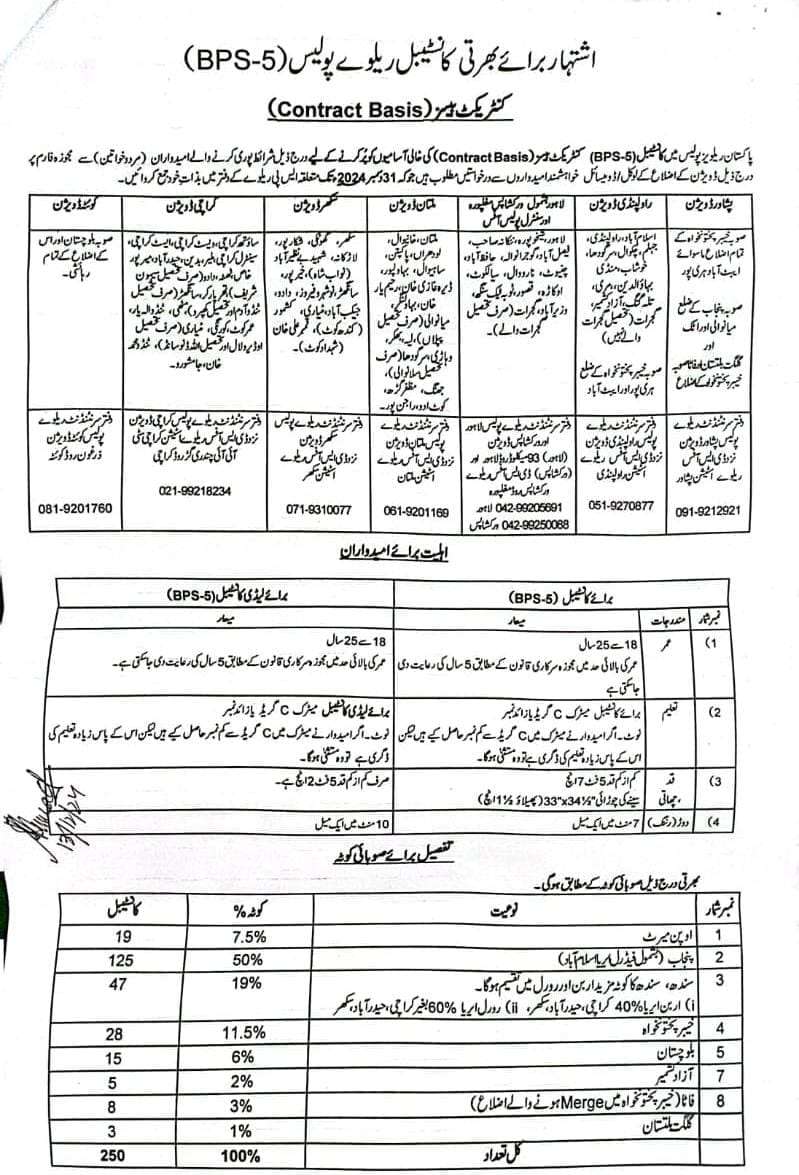 اشتہار برائے بھرتی کانسٹیبل ریلوے پولیس (BPS-5)
کنٹریکٹ بیسز (Contract Basis)
پاکستان ریلویز پولیس میں کانسٹیبل (BPS-5) کنٹریکٹ بیسز (Contract Basis) کی خالی آسامیوں کو پُر کرنے کے لیے درج ذیل شرائط پوری کرنے والے امیدواران (مرد و خواتین) سے مجوزہ فارم پر
درج ذیل ڈویژن کے اضلاع کے لوکل/ڈومیسائل خواہشمند امیدواروں سے درخواستیں مطلوب ہیں جو کہ 31 دسمبر 2024 تک متعلقہ ایس پی ریلوے کے دفتر میں بذات خود جمع کروائیں۔
پشاور ڈویژن
راولپنڈی ڈویژن
لاہور بشمول ورکشاپس مغلپورہ
اور سنٹرل پولیس آفس
ملتان ڈویژن
سکھر ڈویژن
کراچی ڈویژن
کوئٹہ ڈویژن
صوبہ خیبر پختونخواہ کے
تمام اضلاع ماسوائے
ایبٹ آباد ہری پور
صوبہ پنجاب کے ضلع
میانوالی اور اٹک
اور
گلگت بلتستان اور فاٹا صوبہ
خیبر پختونخواہ کے اضلاع
اسلام آباد، راولپنڈی،
جہلم، چکوال، سرگودھا،
خوشاب، منڈی
بہاؤالدین، مری،
تلہ گنگ، آزاد کشمیر،
گجرات (تحصیل گجرات
والے نہیں)
صوبہ خیبر پختونخواہ کے ضلع
ہری پور اور ایبٹ آباد
لاہور، شیخوپورہ، ننکانہ صاحب،
فیصل آباد، گوجرانوالہ، حافظ آباد،
چنیوٹ، نارووال، سیالکوٹ،
اوکاڑہ، قصور، ٹوبہ ٹیک سنگھ،
وزیر آباد، گجرات (صرف تحصیل
گجرات والے)۔
ملتان، خانیوال،
لودھراں، پاکپتن،
ساہیوال، بہاولپور،
ڈیرہ غازی خان، رحیم یار
خان، بہاولنگر،
میانوالی (صرف تحصیل
پپلاں)، لیہ، بھکر،
وہاڑی، سرگودھا (صرف
تحصیل سلانوالی)،
جھنگ، مظفر گڑھ،
کوٹ ادو، راجن پور۔
سکھر، گھوٹکی، شکارپور،
لاڑکانہ، شہید بے نظیر آباد
(نواب شاہ)، خیر پور،
سانگھڑ، نوشہرو فیروز، دادو،
جیکب آباد، مٹیاری، کشمور
(کندھ کوٹ)، قمبر علی خان
(شہداد کوٹ)۔
ساؤتھ کراچی، ویسٹ کراچی، ایسٹ کراچی،
سینٹرل کراچی، ملیر، بدین، حیدر آباد، میرپور
خاص، ٹھٹھہ، دادو، (صرف تحصیل سیہون
شریف) تھرپارکر، سانگھڑ (صرف تحصیل
ٹنڈو آدم اور تحصیل کھپرو)، مٹھی، ٹنڈو الہ یار،
عمر کوٹ، کورنگی، مٹیاری (صرف تحصیل
اوڈیرو لال اور تحصیل اللہ ڈنو سانڈ)، ٹنڈو محمد
خان، جامشورو۔
صوبہ بلوچستان اور اس
کے اضلاع کے تمام
رہائشی۔
دفتر سپرنٹنڈنٹ ریلوے
پولیس پشاور ڈویژن
نزد ڈی ایس آفس
ریلوے اسٹیشن پشاور
091-9212921
دفتر سپرنٹنڈنٹ ریلوے
پولیس راولپنڈی ڈویژن
نزد ڈی ایس آفس ریلوے
اسٹیشن راولپنڈی
051-9270877
دفتر سپرنٹنڈنٹ ریلوے پولیس لاہور
اور ورکشاپس ڈویژن
(لاہور) 93-میکلوڈ روڈ لاہور اور
(ورکشاپس) ڈی ایس آفس
ورکشاپس روڈ مغلپورہ
042-99205691 لاہور
042-99250068 ورکشاپس
دفتر سپرنٹنڈنٹ ریلوے
پولیس ملتان ڈویژن
نزد ڈی ایس آفس ریلوے
اسٹیشن ملتان
061-9201169
دفتر سپرنٹنڈنٹ ریلوے پولیس
سکھر ڈویژن
نزد ڈی ایس آفس ریلوے
اسٹیشن سکھر
071-9310077
دفتر سپرنٹنڈنٹ ریلوے پولیس کراچی ڈویژن
نزد ڈی ایس آفس ریلوے اسٹیشن کراچی سٹی
آئی آئی چندریگر روڈ کراچی
021-99218234
دفتر سپرنٹنڈنٹ ریلوے
پولیس کوئٹہ ڈویژن
زرغون روڈ کوئٹہ
081-9201760
اہلیت برائے امیدواران
برائے کانسٹیبل (BPS-5)
برائے لیڈی کانسٹیبل (BPS-5)
نمبر شمار
مندرجات
معیار
معیار
1)
عمر
18 سے 25 سال
عمر کی بالائی حد میں مجوزہ سرکاری قانون کے مطابق 5 سال کی رعایت دی
جا سکتی ہے
18 سے 25 سال
عمر کی بالائی حد میں مجوزہ سرکاری قانون کے مطابق 5 سال کی رعایت دی جا سکتی ہے۔
2)
تعلیم
برائے کانسٹیبل میٹرک C گریڈ یا زائد نمبر
نوٹ۔ اگر امیدوار نے میٹرک میں C گریڈ سے کم نمبر حاصل کیے ہیں لیکن
اس کے پاس زیادہ تعلیم کی ڈگری ہے تو وہ مستثنیٰ ہو گا۔
برائے لیڈی کانسٹیبل میٹرک C گریڈ یا زائد نمبر
نوٹ۔ اگر امیدوار نے میٹرک میں C گریڈ سے کم نمبر حاصل کیے ہیں لیکن اس کے پاس زیادہ تعلیم کی
ڈگری ہے تو وہ مستثنیٰ ہو گا۔
3)
قد
چھاتی،
کم از کم قد 5 فٹ 7 انچ
سینے کی چوڑائی "33"x34½ (پھیلاؤ 1½ انچ)
صرف کم از کم قد 5 فٹ 2 انچ ہے۔
4)
دوڑ (رننگ)
7 منٹ میں ایک میل
10 منٹ میں ایک میل
13/12/24
تفصیل برائے صوبائی کوٹہ
بھرتی درج ذیل صوبائی کوٹہ کے مطابق ہو گی۔
نمبر شمار نوعیت کوٹہ % کانسٹیبل
1 اوپن میرٹ 7.5% 19
2 پنجاب (بشمول فیڈرل ایریا اسلام آباد) 50% 125
3 سندھ، سندھ کا کوٹہ مزید اربن اور رورل میں تقسیم ہو گا۔ 19% 47
i) اربن ایریا 40% کراچی، حیدر آباد، سکھر، ii) رورل ایریا 60% بغیر کراچی، حیدر آباد، سکھر
4 خیبر پختونخواہ 11.5% 28
5 بلوچستان 6% 15
7 آزاد کشمیر 2% 5
8 فاٹا (خیبر پختونخواہ میں Merge ہونے والے اضلاع) 3% 8
گلگت بلتستان 1% 3
کل تعداد 100% 250